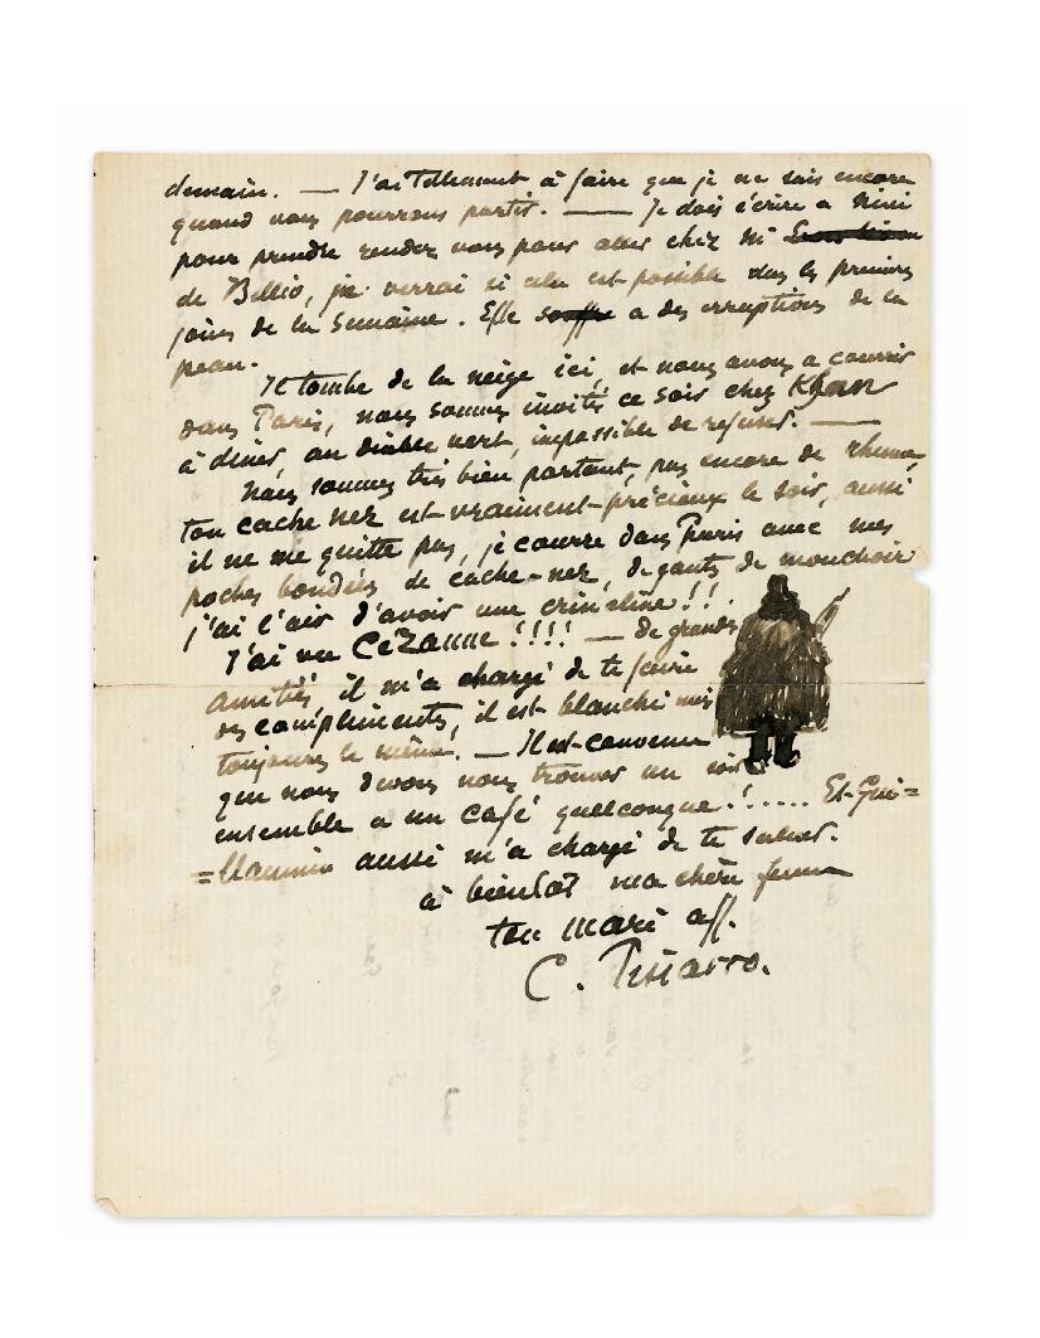 demain. — J'ai tellement à faire que je ne sais encore
quand nous pourrons partir. — Je dois écrire a Nini
pour prendre rendez vous pour aller chez Mr
de Bellio, je verrai si cela est possible dans les premiers
jours de la semaine. Elle souffre a des erruptions de la
peau.
Il tombe de la neige ici, et nous avons a courrir
dans Paris, nous sommes invités ce soir chez Khan
à diner, au diable vert, impossible de refuser. —
Nous sommes très bien portant, pas encore de rhume,
ton cache nez est vraiment précieux le soir, aussi
il ne me quitte pas, je courre dans Paris avec mes
poches bondées de cache-nez, de gants de mouchoir
j'ai l'air d'avoir une crinoline!!.
J'ai vu Cézanne!!!! — de grands
amitiés il m'a chargé de te faire
ses compliments, il est blanchi mais
toujours le même. — Il est convenu
que nous devons nous trouver un soir
ensemble a un café quelconque.!..... Et Gui=
=llaumin aussi m'a chargé de te saluer.
à bientot ma chère femme
ton mari aff.
C. Pissarro.